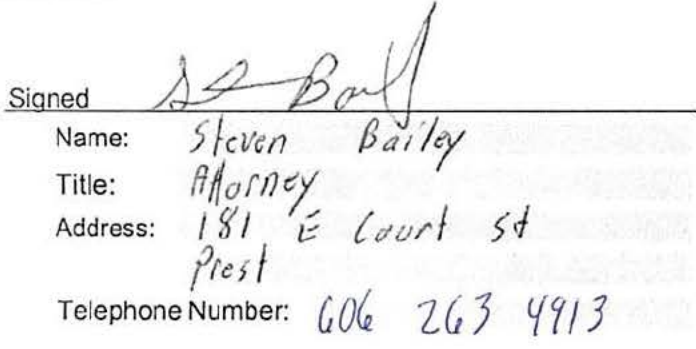 Signed St Bail
Name: Steven Bailey
Title: Attorney
Address: 181 E Court St
Prest
Telephone Number: 606 263 4913